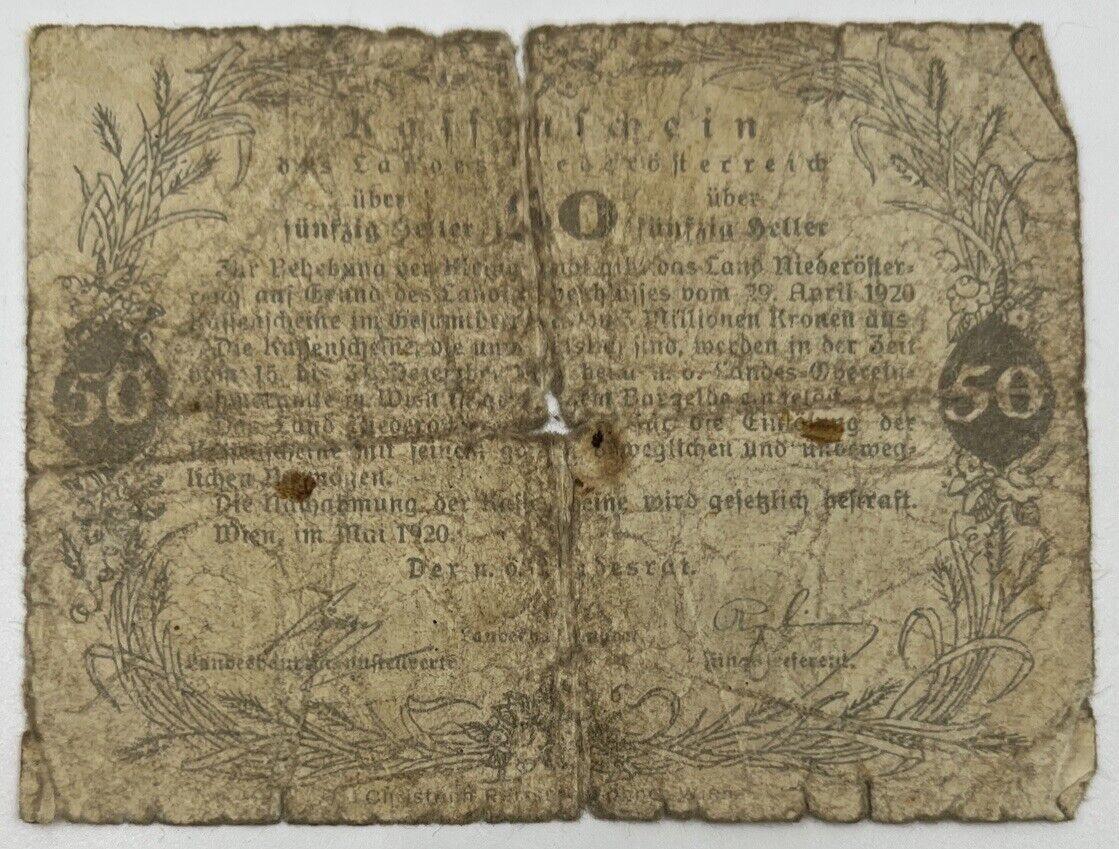 Kassenschein
des Landes Niederösterreich
über 50 über
fünfzig Heller fünfzig Heller
Zur Behebung der Kleingeldnot gibt das Land Niederöster-
reich auf Grund des Landtagsbeschlusses vom 29. April 1920
Kassenscheine im Gesamtbetrage von Millionen Kronen aus
Die Kassenscheine, die sind, werden in der Zeit
vom 15. bis 31. Dezember beim n. ö. Landes-Oberein-
nehmeramte in Wien Bargelde eingelöst.
Das Land Niederösterreich die Einlösung der
Kassenscheine mit seinem beweglichen und unbeweg-
lichen Vermögen.
Die Nachahmung der Kassenscheine wird gesetzlich bestraft.
Wien, im Mai 1920.
50
50
Der n. ö. Landesrat.
Landeshauptmann
Landeshauptmannstellvertreter
Finanzreferent.
Christoph Wien